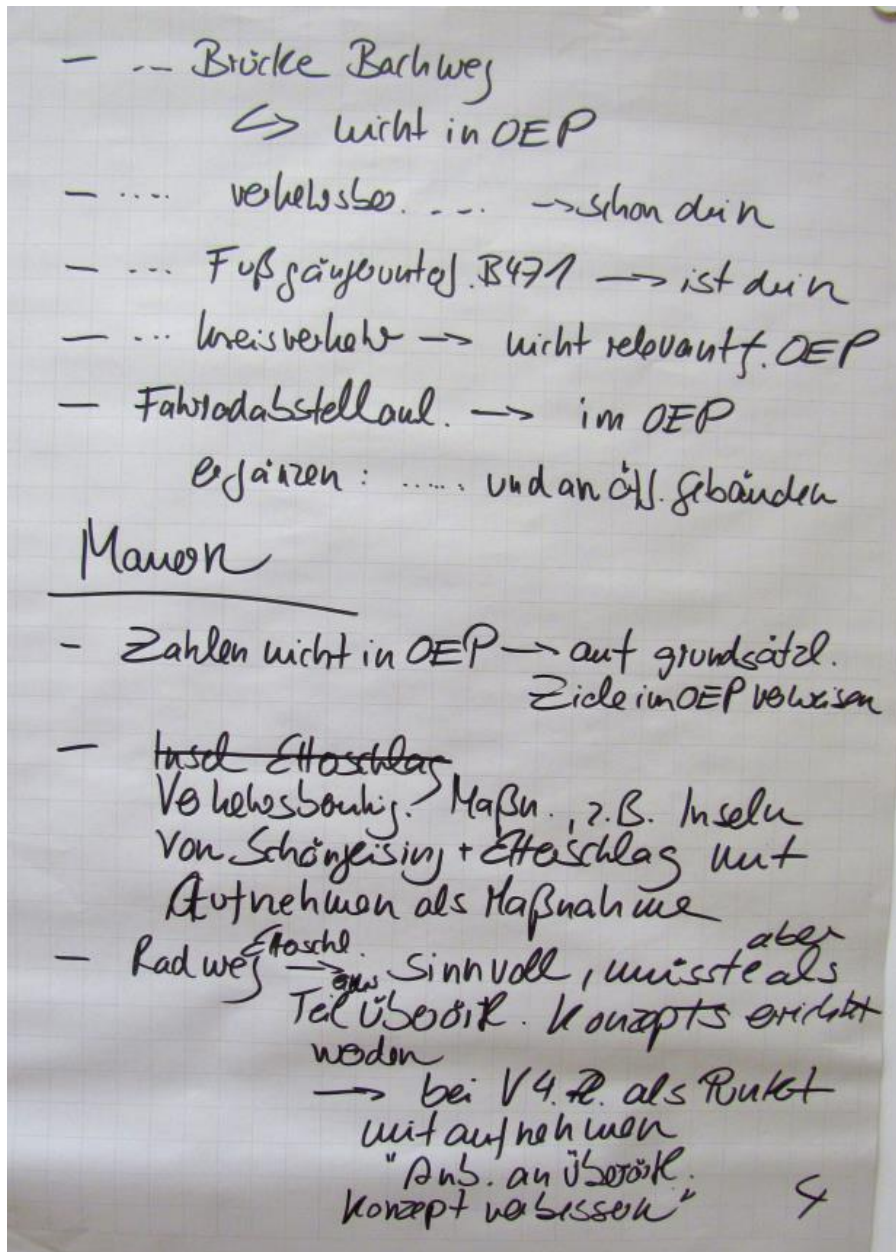 - -- Brücke Bachweg
↳ nicht in OEP
- .... verkehrsber. .... -> schon drin
- ... Fußgängerunterf. B471 -> ist drin
- ... Kreisverkehr -> nicht relevant f. OEP
- Fahrradabstellanl. -> im OEP
ergänzen: ..... und an öff. Gebäuden
Mauern
- Zahlen nicht in OEP -> auf grundsätzl.
Ziele im OEP verweisen
- Insel Etterschlag
Verkehrsberuhig. Maßn., z.B. Inseln
von Schöngeising + Etterschlag mit
Aufnehmen als Maßnahme
- Radweg Etterschl. -> sinnvoll, aber müsste als
Teil überörtl. Konzepts errichtet
werden
-> bei V4. als Punkt
mit aufnehmen
"Anb. an überörtl.
Konzept verbessern"